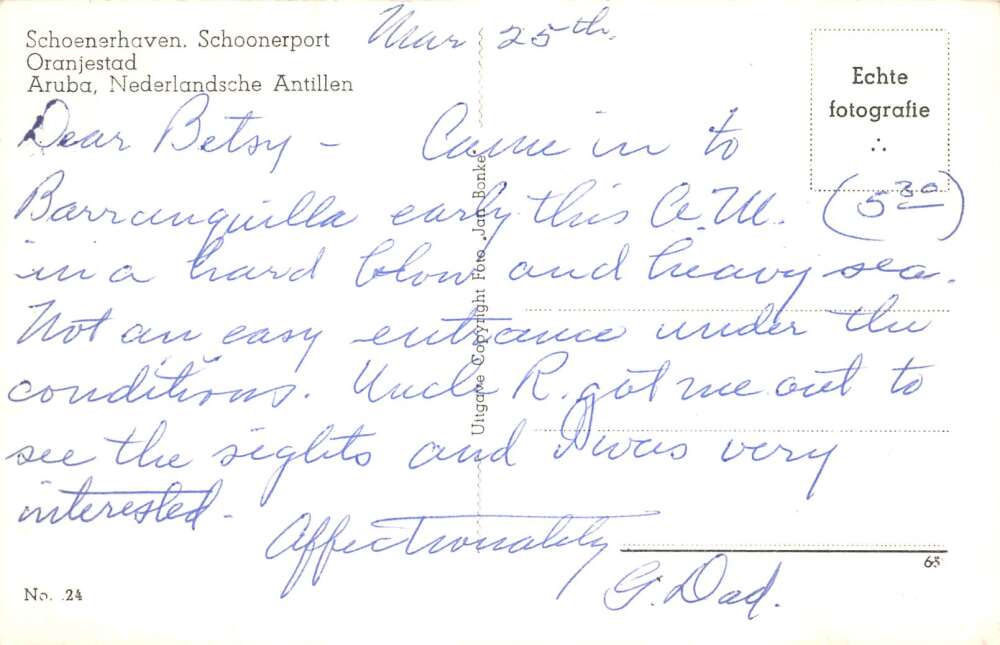 Schoenerhaven. Schoonerport
Oranjestad
Aruba, Nederlandsche Antillen
Mar 25th.
Echte
fotografie
Dear Betsy - Came in to
Barranquilla early this A.M. (5 30)
in a hard blow and heavy sea.
Not an easy entrance under the
conditions. Uncle R. got me out to
see the sights and I was very
interested -
Affectionately
G. Dad.
Uitgave Copyright Foto Jan Bonke.
65
No. .24